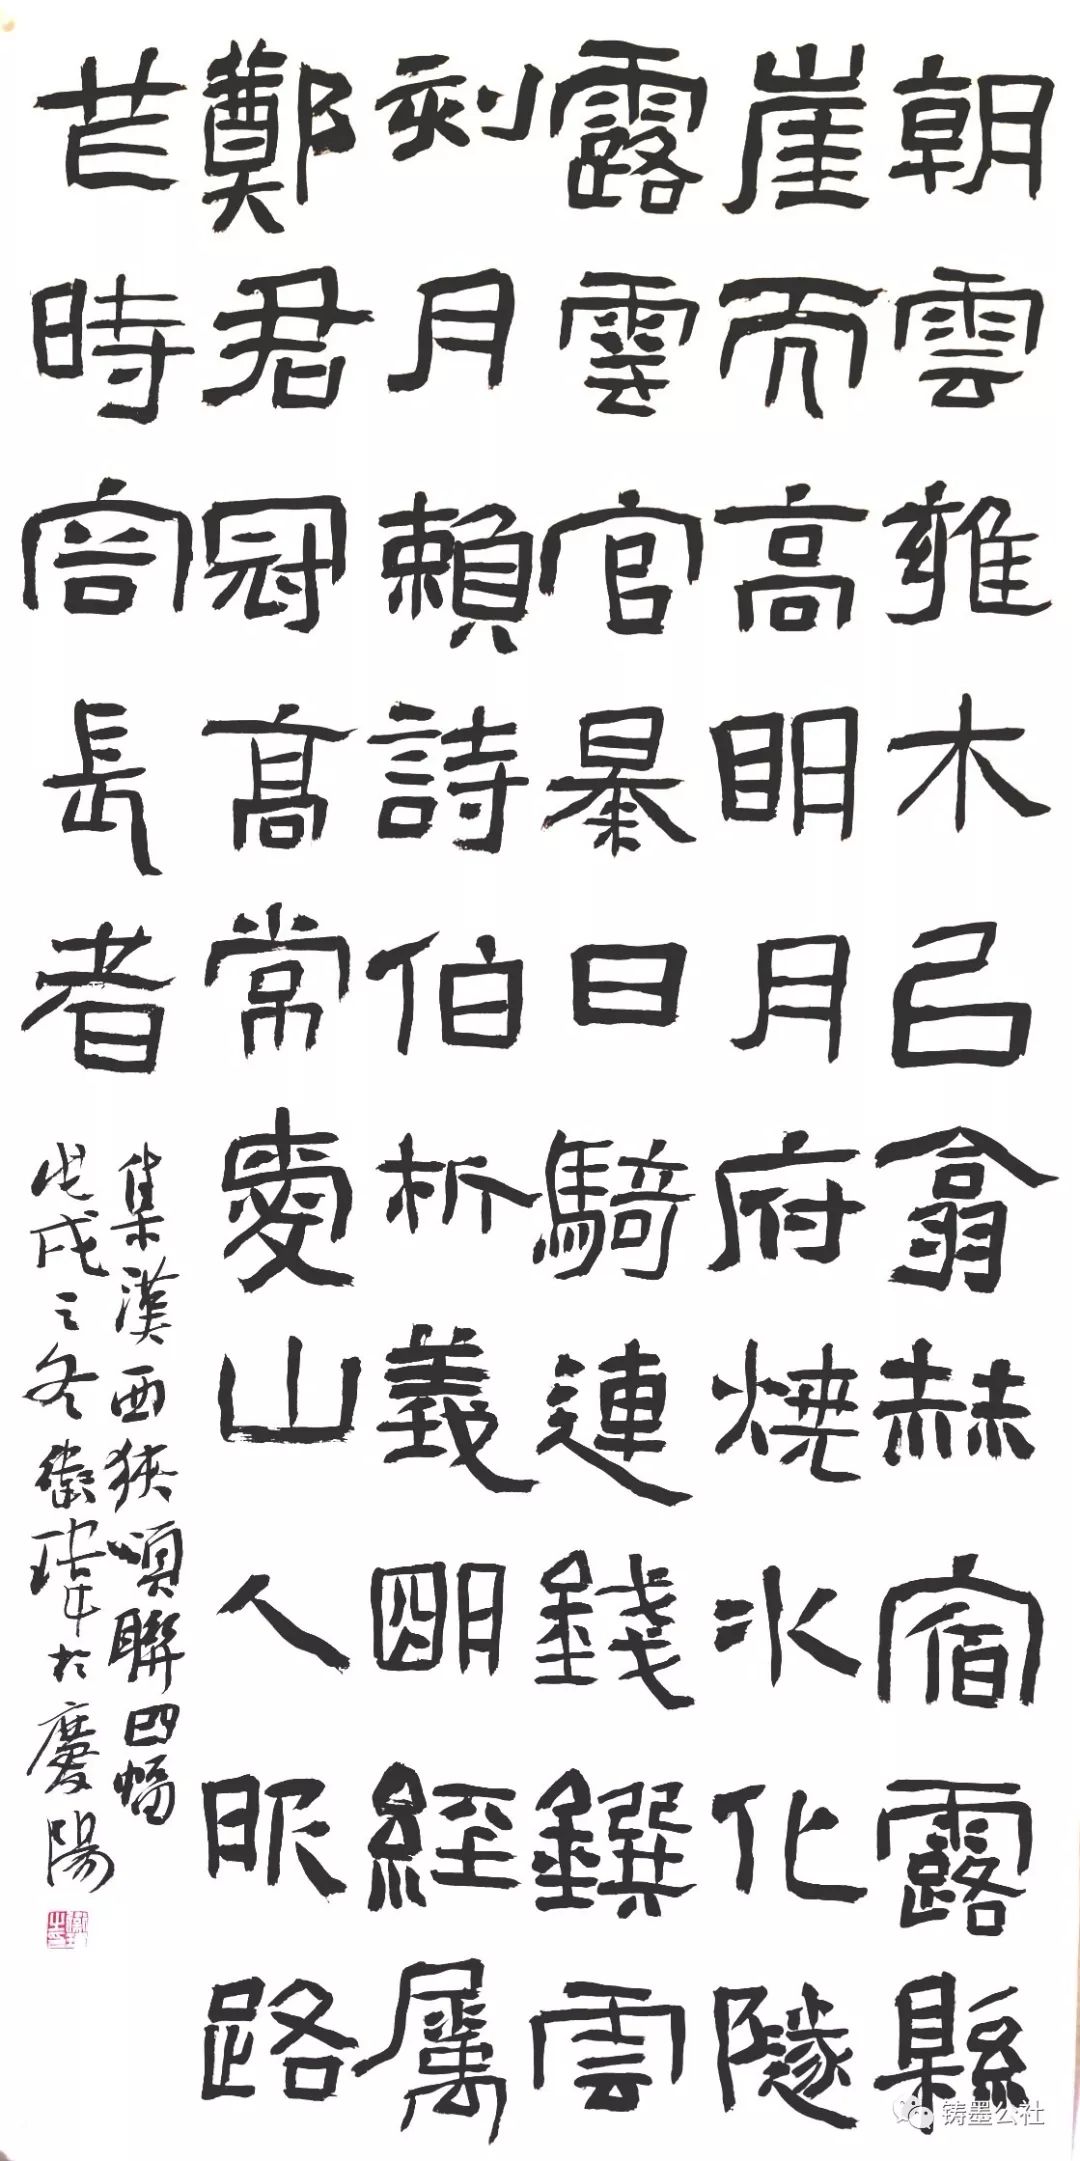 朝雲雍木已翕赫宿露縣
崖而高明月府燒冰化隧
露雲官暴日騎連錢鐉雲
刻月賴詩伯析義明經厲
鄭君冠高常愛山人眂路
芒時容長者
集漢西狹頌聯四幅
戊戌之冬 瑋於慶陽
铸墨公社